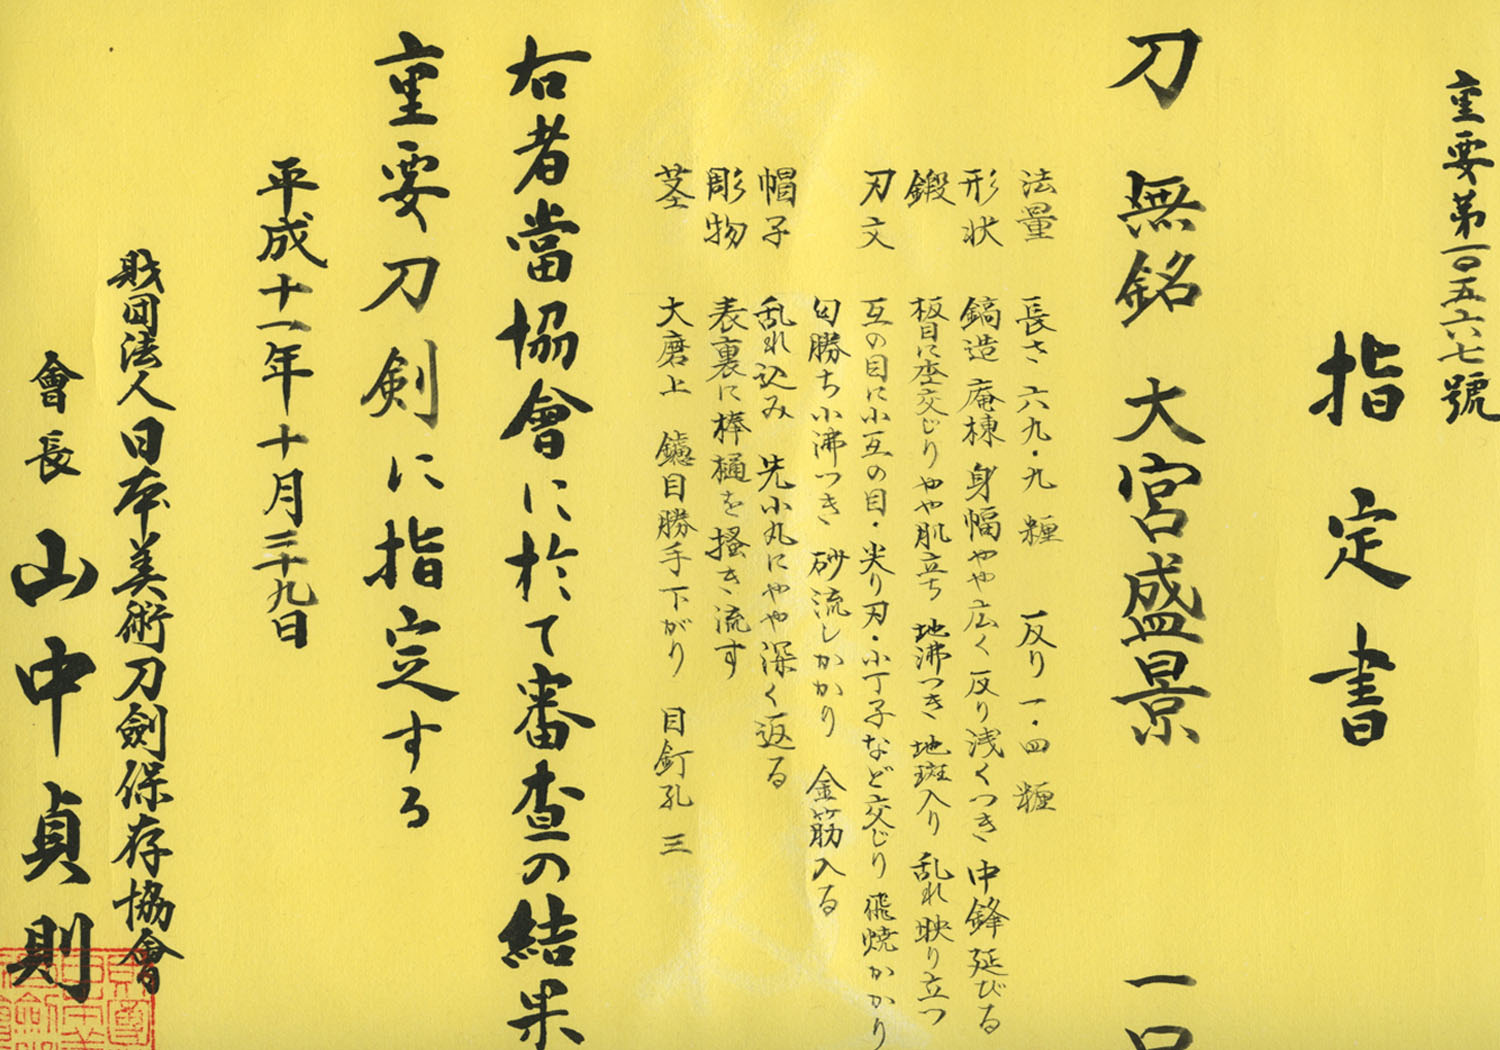 重要第一〇五六七號
指定書
刀 無銘 大宮盛景 一口
法量 長さ 六九・九 糎 反り 一・四 糎
形状 鎬造 庵棟 身幅やや広く 反り浅くつき 中鋒延びる
鍛 板目に杢交じり やや肌立ち 地沸つき 地斑入り 乱れ映り立つ
刃文 互の目に小互の目・尖り刃・小丁子など交じり 飛焼かかり
匂勝ち小沸つき 砂流しかかり 金筋入る
帽子 乱れ込み 先小丸にやや深く返る
彫物 表裏に棒樋を掻き流す
茎 大磨上 鑢目勝手下がり 目釘孔 三
右者當協會に於て審査の結果
重要刀剣に指定する
平成十一年十月二十九日
財団法人日本美術刀劍保存協會
會長 山中貞則